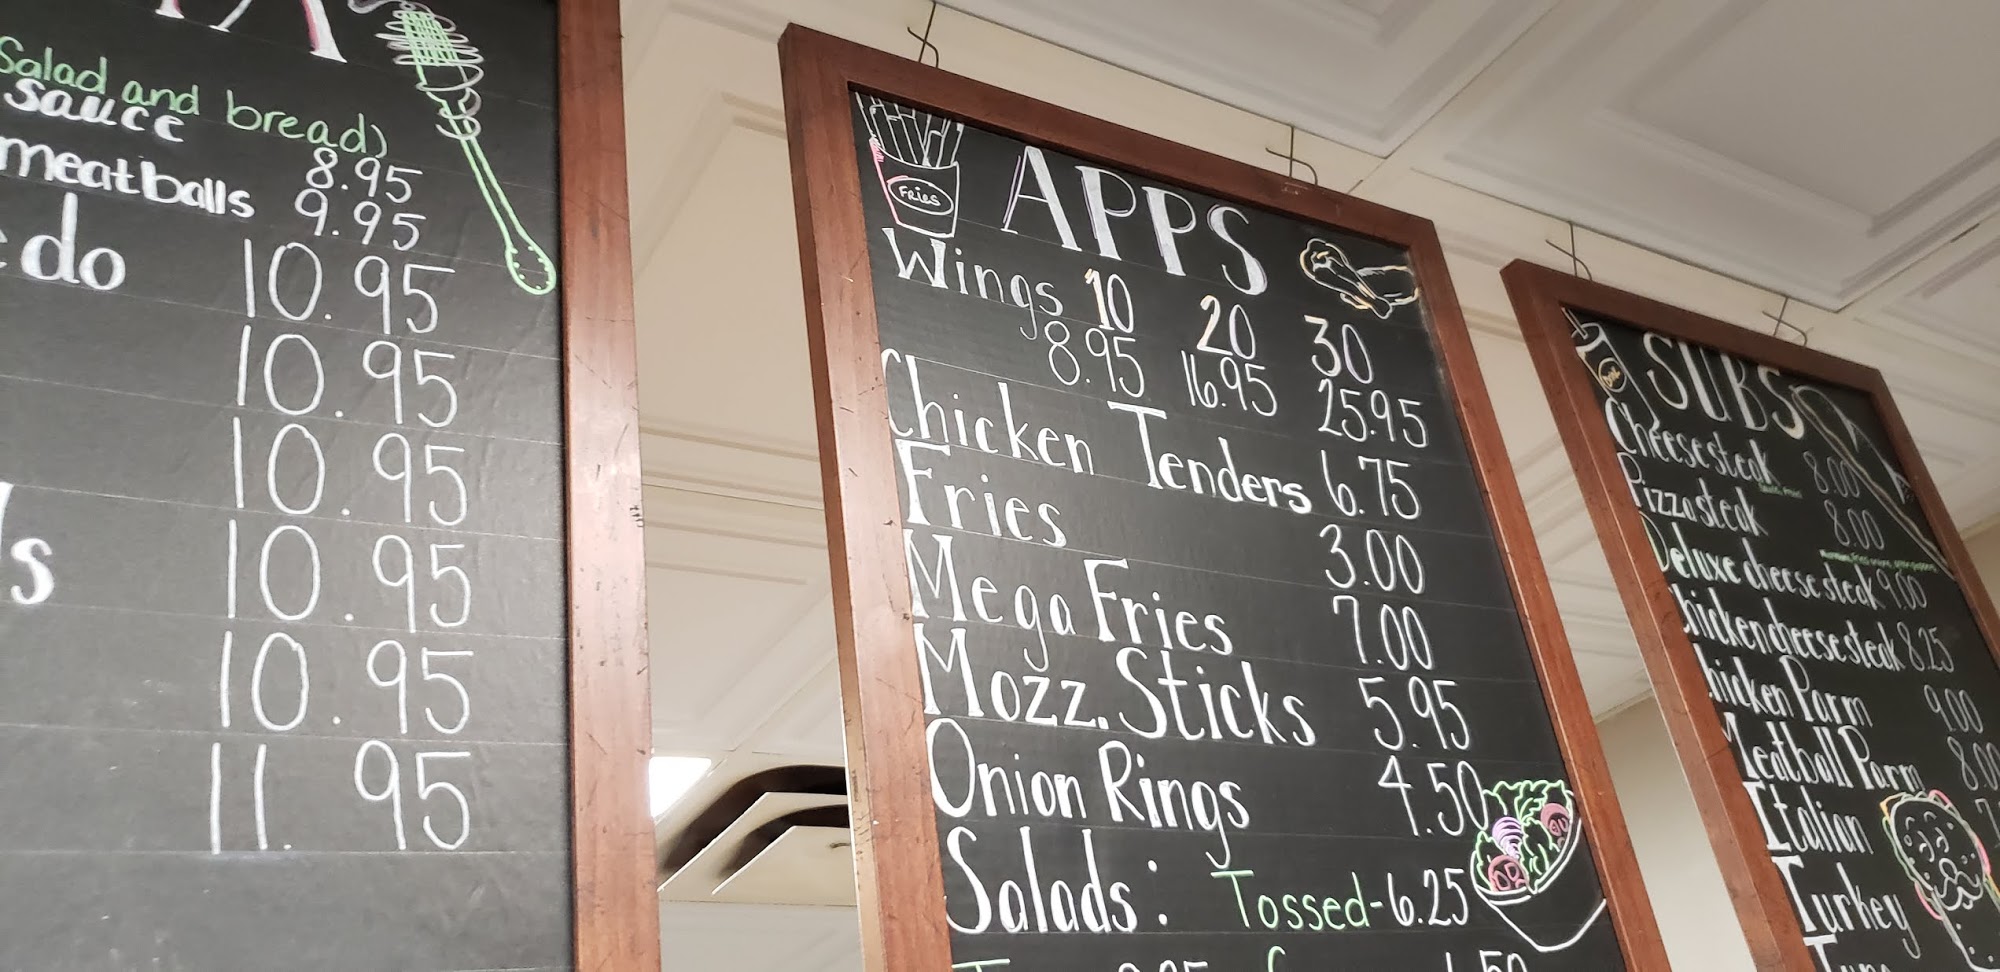 Salad and bread)
sauce 8.95
meatballs 9.95
do 10.95
10.95
10.95
10.95
s 10.95
11.95
Fries
APPS
Wings 10 20 30
8.95 16.95 25.95
Chicken Tenders 6.75
Fries 3.00
Mega Fries 7.00
Mozz. Sticks 5.95
Onion Rings 4.50
Salads: Tossed-6.25
SUBS
Cheesesteak 8.00
Pizzasteak 8.00
Deluxe cheesesteak 9.00
Chickencheesesteak 8.25
Chicken Parm 9.00
Meatball Parm 8.00
Italian
Turkey